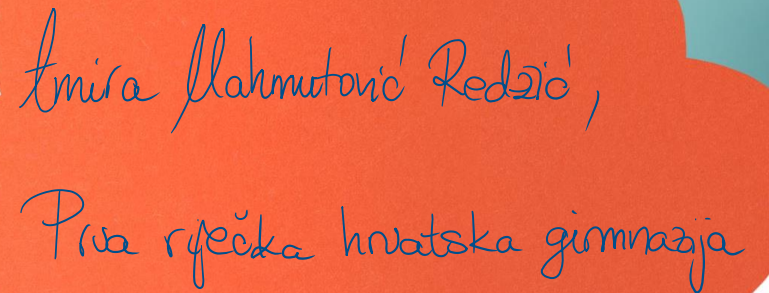 Amira Mahmutović Redzić,
Prva riječka hrvatska gimnazija